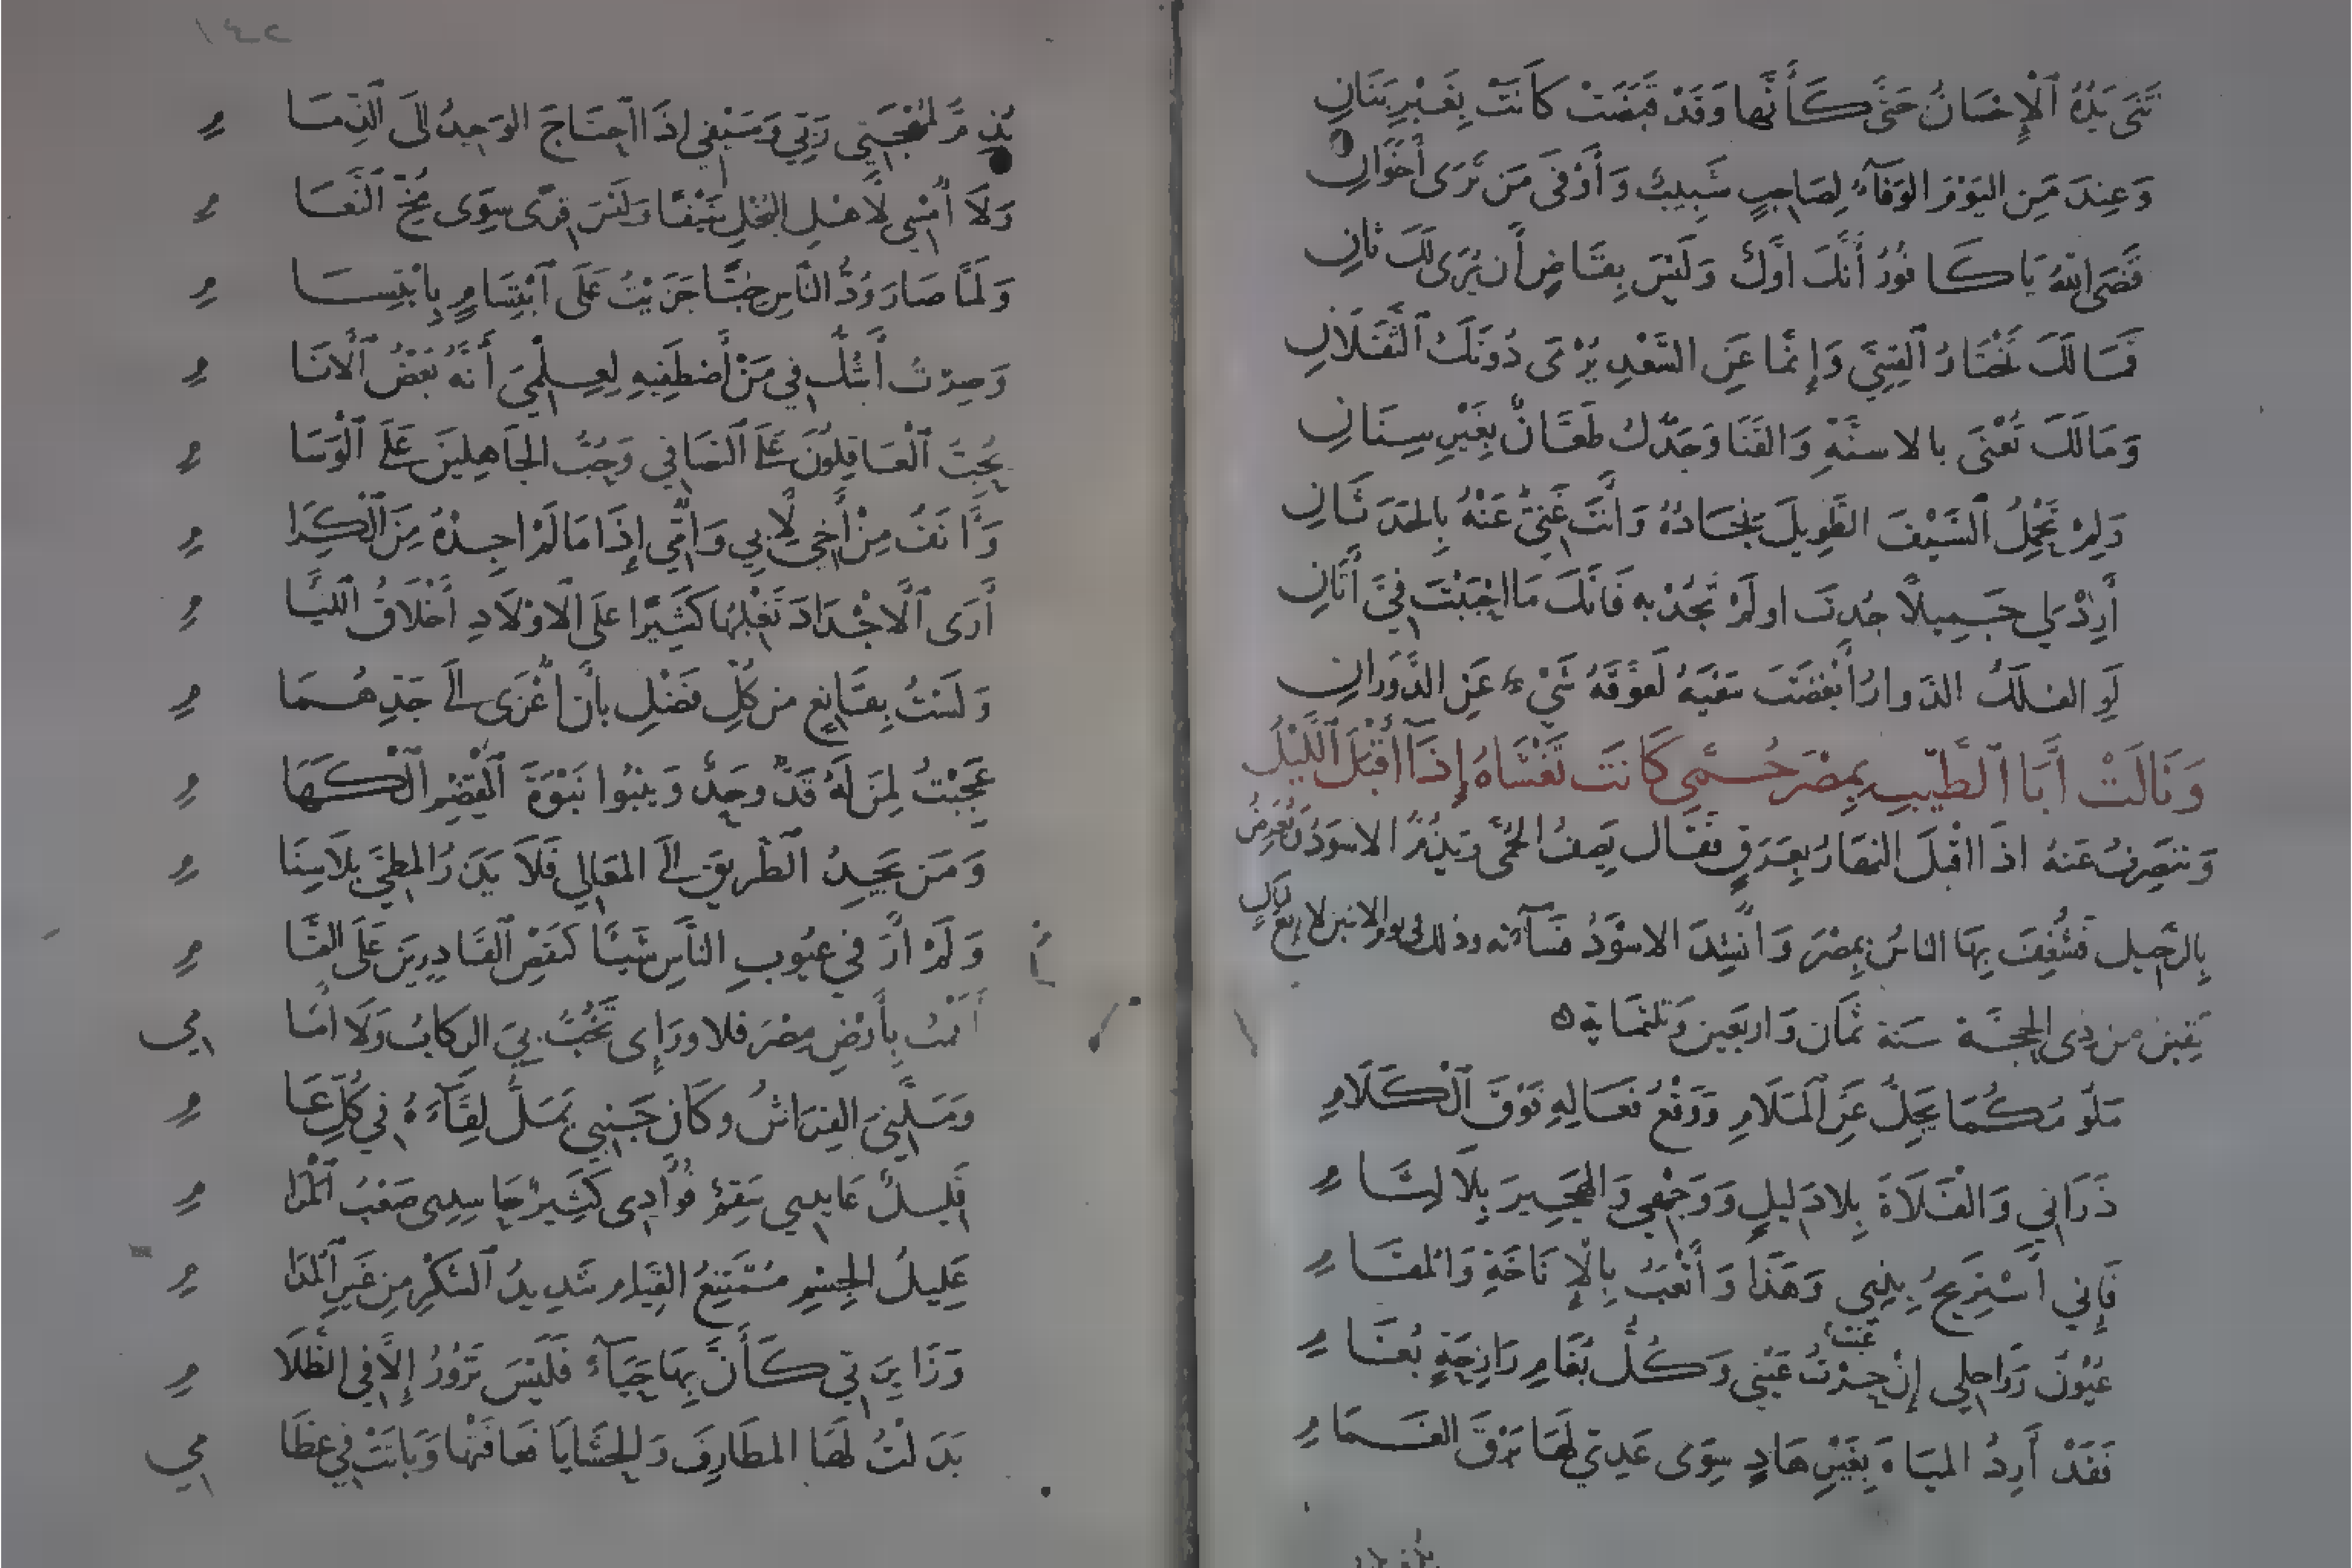 ثَنَى يَدَهُ ٱلْإِحْسَانُ حَتَّى كَأَنَّهَا وَقَدْ قَبَضَتْ كَانَتْ بِغَيْرِ بَنَانِ
وَعِندَ مَنِ اليَوْمَ الوَفَآءُ لِصَاحِبٍ شَبِيبٌ وَأَوْفَى مَن تَرَى أَخَوَانِ
قَضَى اللهُ يَا كَافُورُ أَنَّكَ أَوَّلٌ وَلَيْسَ بِقَاضٍ أَن يُرَى لَكَ ثَانِ
فَمَا لَكَ تَخْتَارُ ٱلْقِسِيَّ وَإِنَّمَا عَنِ السَّعْدِ يُرْمَى دُونَكَ ٱلثَّقَلَانِ
وَمَالَكَ تُعْنَى بالاسنَّةِ وَالقَنَا وَجَدُّكَ طَعَّانٌ بِغَيْرِ سِنَانِ
وَلِمْ تَحْمِلُ ٱلسَّيْفَ الطَّوِيلَ نِجَادُهُ وَأَنْتَ غَنِيٌّ عَنْهُ بِالحَدَثَانِ
أَرِدْ لِي جَمِيلًا جُدتَ اولَمْ تَجُدْ بِهِ فَإِنَّكَ مَا احْبَبْتَ فِيَّ أَتَانِ
لَوِ الفلَكُ الدَّوارُ أَبْغَضْتَ سَعْيَهُ لَعَوَّقَهُ شَيْءٌ عَنِ الدَّوَرَانِ
وَنَالَتْ أَبَا ٱلطَّيِّبِ بِمِصْرَ حُمَّى كَانَتْ تَغْشَاهُ إِذَا أَقْبَلَ ٱللَّيْلُ
وَتَنصَرِفُ عَنهُ اذَا اقْبَلَ النهَارُ بِعَرَقٍ فَقَال يَصِفُ الحُمَّى وَيَذُمُّ الاسْوَدَ وَيُعَرِّضُ
بِالرَّحِيل فَشُغِفَ بِهَا الناسُ بمِصْرَ وَأُنْشِدَ الاسْوَدُ فَسَآءته وذلك في يوم الاثنين لاربع لَيَالٍ
بَقِينَ من ذِى الحِجَّة سَنة ثمَان وَاربَعِين وَثلثمَاية
مَلُومُكُمَا يَجِلُّ عَنِ ٱلْمَلَامِ وَوَقْعُ فَعَالِهِ فَوْقَ ٱلْكَلَامِ
ذَرَانِي وَالفَلَاةَ بِلَا دَلِيلٍ وَوَجْهِي وَالهَجِيرَ بِلَا لِثَامِ
فَإِنِي أَسْتَرِيحُ بِذِي وَهَذَا وَأَتْعَبُ بِالْإِنَاخَةِ وَالمُقَامِ
عُيُونُ رَوَاحِلِي إِنْ حِرْتُ عَيْنِي وَكُلُّ بُغَامِ رَازِحَةٍ بُغَامِ
فَقَدْ أَرِدُ المِيَاهَ بِغَيْرِ هَادٍ سِوَى عَدِّي لَهَا بَرْقَ الغَمَامِ
يُذِمُّ لِمُهْجَتِي رَبِّي وَسَيْفِي اذَا احْتَاجَ الوَحِيدُ إِلَى ٱلذِّمَامِ
وَلَا أُمْسِي لِأَهْلِ البُخْلِ ضَيْفًا وَلَيْسَ قِرًى سِوَى مُخِّ ٱلنَّعَامِ
وَلَمَّا صَارَ وُدُّ النَّاسِ خِبًّا جَزَيْتُ عَلَى ٱبْتِسَامٍ بِابْتِسَامِ
وَصِرْتُ أَشُكُّ فِي مَنْ أَصْطَفِيهِ لِعِلْمِي أَنَّهُ بَعْضُ ٱلْأَنَامِ
يُحِبُّ ٱلْعَاقِلُونَ عَلَى ٱلتَّصَافِي وَحُبُّ الجَاهِلِينَ عَلَى ٱلْوَسَامِ
وَآنَفُ مِنْ أَخِي لِأَبِي وَأُمِّي إِذَا مَا لَمْ اجِدْهُ مِنَ ٱلْكِرَامِ
أَرَى ٱلْأَجْدَادَ تَغْلِبُهَا كَثِيرًا عَلَى ٱلْأَوْلَادِ أَخْلَاقُ ٱللِّئَامِ
وَلَسْتُ بِقَانِعٍ من كُلِّ فَضْلٍ بأَنْ أُعْزَى إِلَى جَدٍّ هُمَامِ
عَجِبْتُ لِمَن لَهُ قَدٌّ وَحَدٌّ وَيَنْبُوا نَبْوَةَ ٱلْقَضِمِ ٱلْكَهَامِ
وَمَن يَجِدُ ٱلطَّرِيقَ إِلَى المَعَالِي فَلَا يَذَرُ المَطِيَّ بِلَا سَنَامِ
وَلَمْ أَرَ فِي عُيُوبِ النَّاسِ شَيئًا كَنَقْصِ ٱلقَادِرِينَ عَلَى التَّمَامِ
أَقَمْتُ بِأَرْضِ مِصْرَ فَلَا وَرَاءِى تَخُبُّ بِيَ الرِكَابُ وَلَا أَمَامِي
وَمَلَّنِيَ الفِرَاشُ وَكَانَ جَنْبِي يَمَلُّ لِقَآءَهُ فِي كُلِّ عَامِ
قَلِيلٌ عَايِدِي سَقِمٌ فُؤَادِى كَثِيرٌ حَاسِدِى صَعْبٌ ٱلْمَرَامِ
عَلِيلُ الجِسْمِ مُمْتَنِعُ القِيَامِ شَدِيدُ ٱلسُّكْرِ مِن غَيْرِ ٱلْمُدَامِ
وَزَايِرَتِي كَأَنَّ بِهَا حَيَآءً فَلَيْسَ تَزُورُ إِلَّا فِي الظَّلَامِ
بَذَلْتُ لَهَا المَطَارِفَ وَالحَشَايَا فَعَافَتْهَا وَبَاتَتْ فِي عِظَامِي